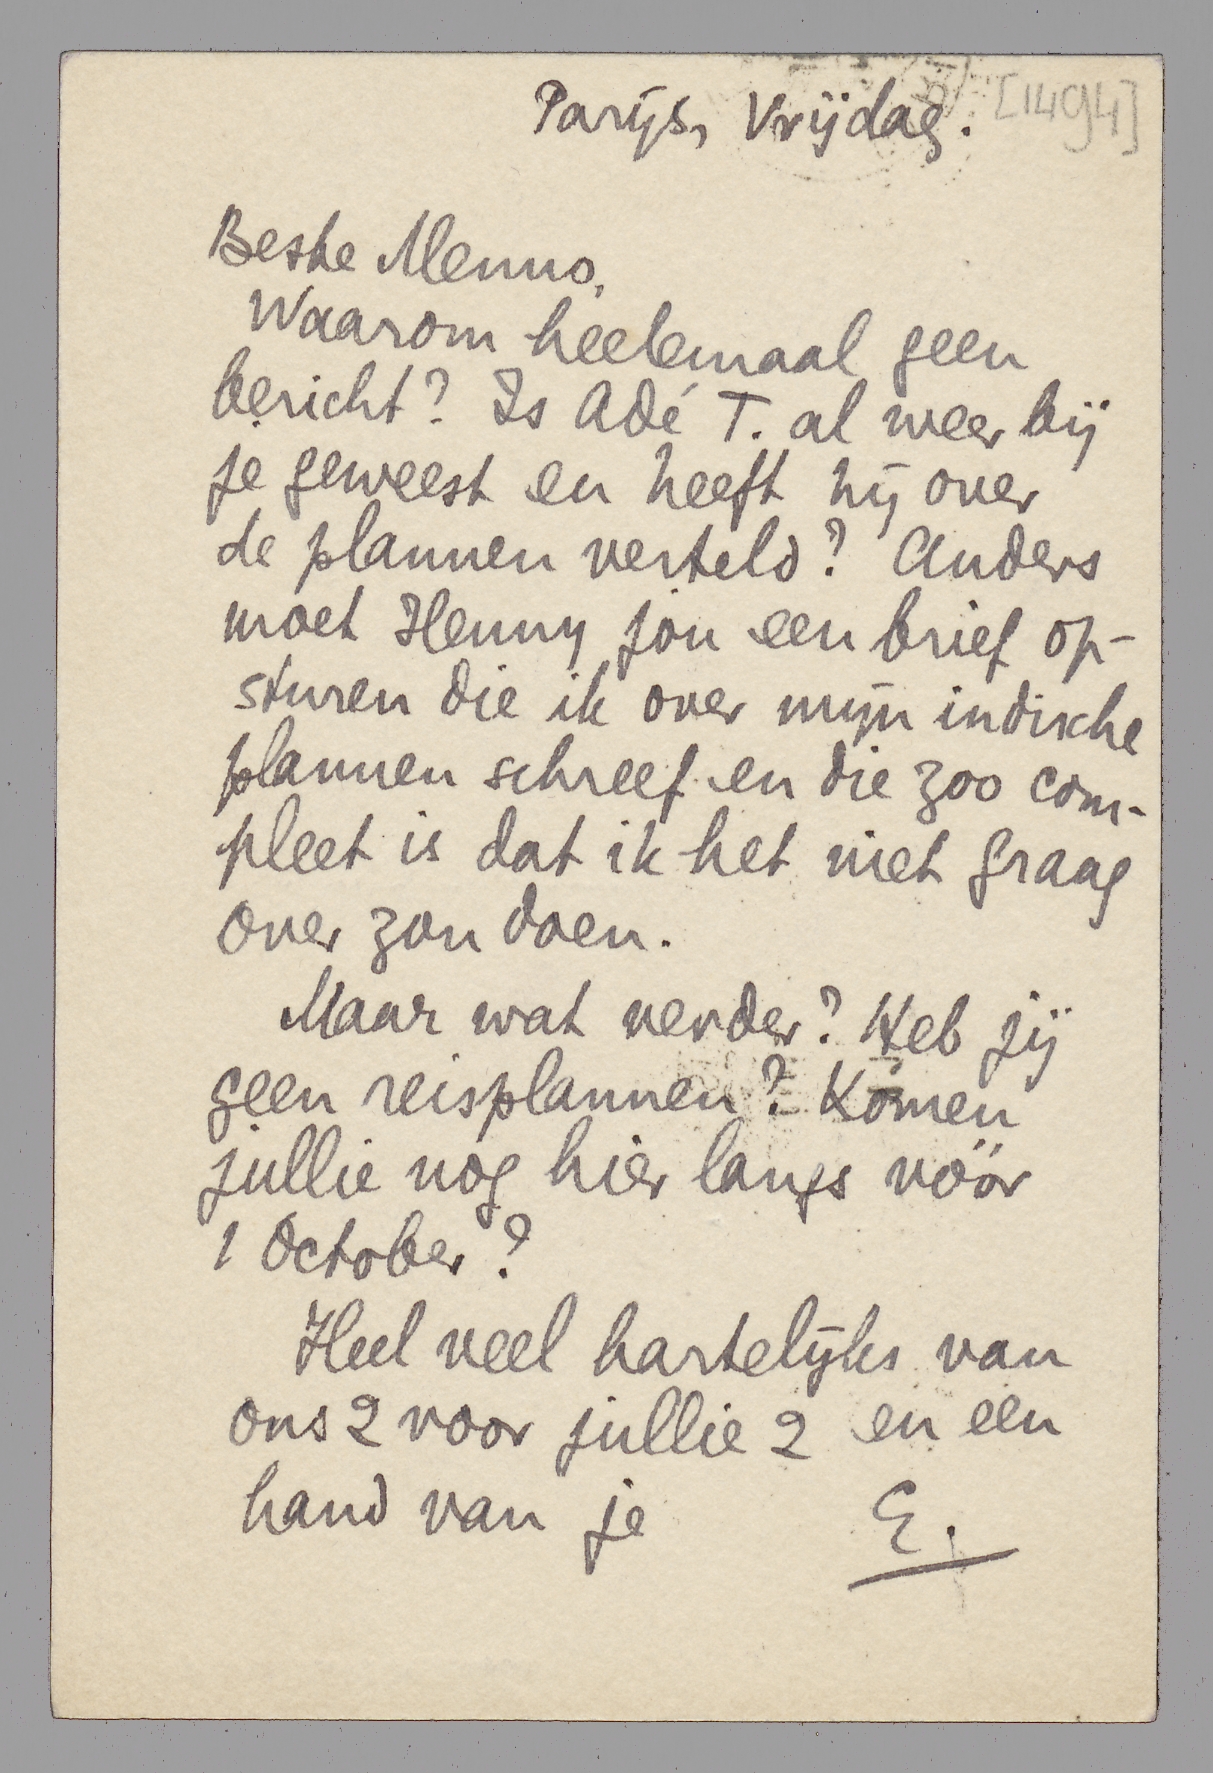 Parijs, Vrijdag.
[1494]
Beste Menno,
Waarom heelemaal geen
bericht? Is Adé T. al weer bij
je geweest en heeft hij over
de plannen verteld? Anders
moet Henny jou een brief op-
sturen die ik over mijn indische
plannen schreef en die zoo com-
pleet is dat ik het niet graag
over zou doen.
Maar wat verder? Heb jij
geen reisplannen? Komen
jullie nog hier langs vóór
1 October?
Heel veel hartelijks van
ons 2 voor jullie 2 en een
hand van je E.